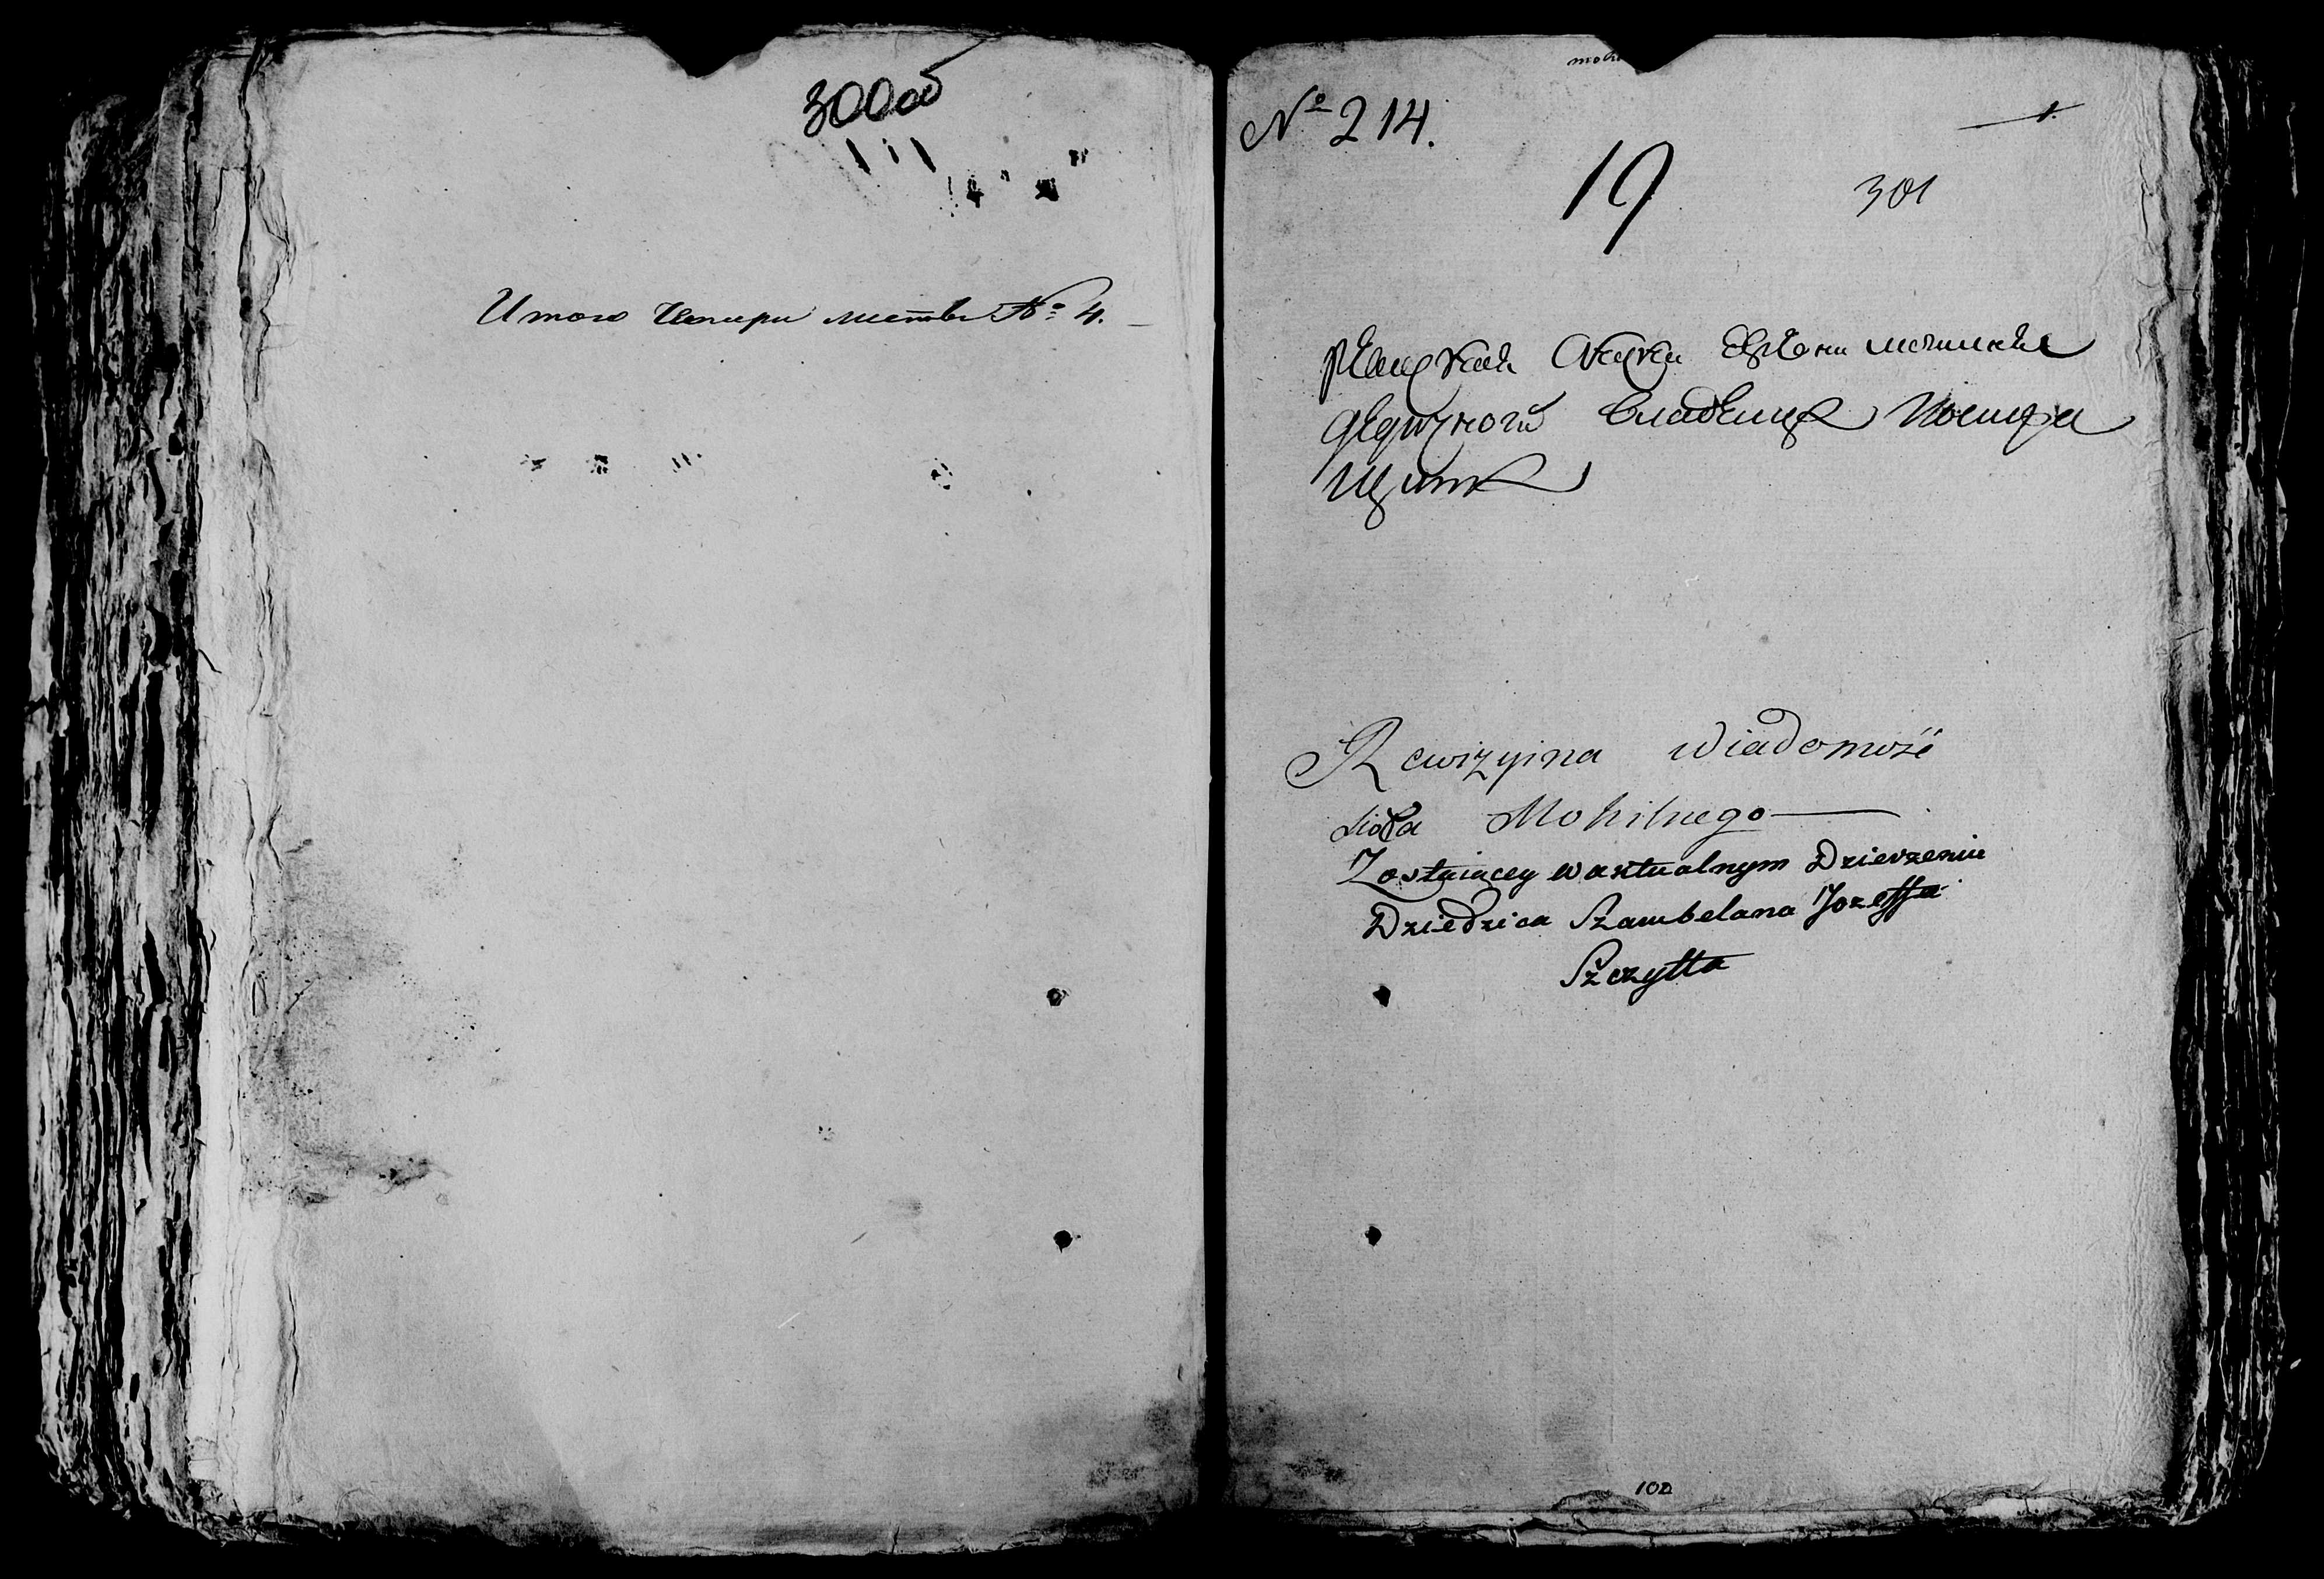 300об
Итого Четыри листовъ № 4.
№ 214.
1.
19
301
Ревизская Скаска деревни
дедичного владельца Иосифа
Щита
Rewizyina wiadomość
sioła Mohilnego
Zostaiącey w aktualnym Dzierzeniu
Dziedzica Szambelana Jozeffa
Szczytta
102